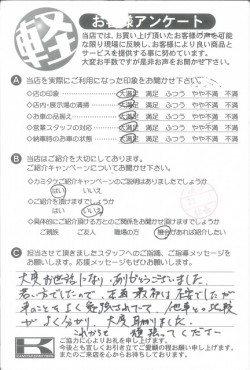 軽
お客様アンケート
当店では、お買い上げ頂いたお客様の声を可能
な限り現場に反映し、お客様により良い商品と
サービスを提供する事に努めています。
大変お手数ですが是非お声をお聞かせ下さい。
A 当店を実際にご利用になった印象をお聞かせ下さい。
◇店の印象 大満足 満足 ふつう やや不満 不満
◇店内・展示場の清掃 大満足 満足 ふつう やや不満 不満
◇お車の品揃え 大満足 満足 ふつう やや不満 不満
◇営業スタッフの対応 大満足 満足 ふつう やや不満 不満
◇納車時のお車の状態 大満足 満足 ふつう やや不満 不満
B 当店はご紹介を大切にしております。
ご紹介キャンペーンについてお聞かせ下さい。
ご紹介キャンペーンのご説明はありましたでしょうか
はい いいえ
◇ご紹介を頂けますでしょうか
はい いいえ
◇具体的にご紹介頂ける方とのご関係をお聞かせ頂けますでしょうか
ご親族 ご友人 職場の方 機会があれば紹介したい
C 担当させて頂きましたスタッフへのご指摘、ご指導メッセージを
お願いします。応援メッセージもぜひお願いします。
大変お世話になり、ありがとうございました。
若い方でしたので、正直最初は不安でしたが
車のこともよく勉強されてて、他車との比較
がよく分かり、大変助かりました。
これからも頑張ってください
ご協力に心よりお礼を申し上げます。
今後とも宜しくお引き立てご愛顧の程お願い申し上げます。
またのご来店を心からお待ちしております。